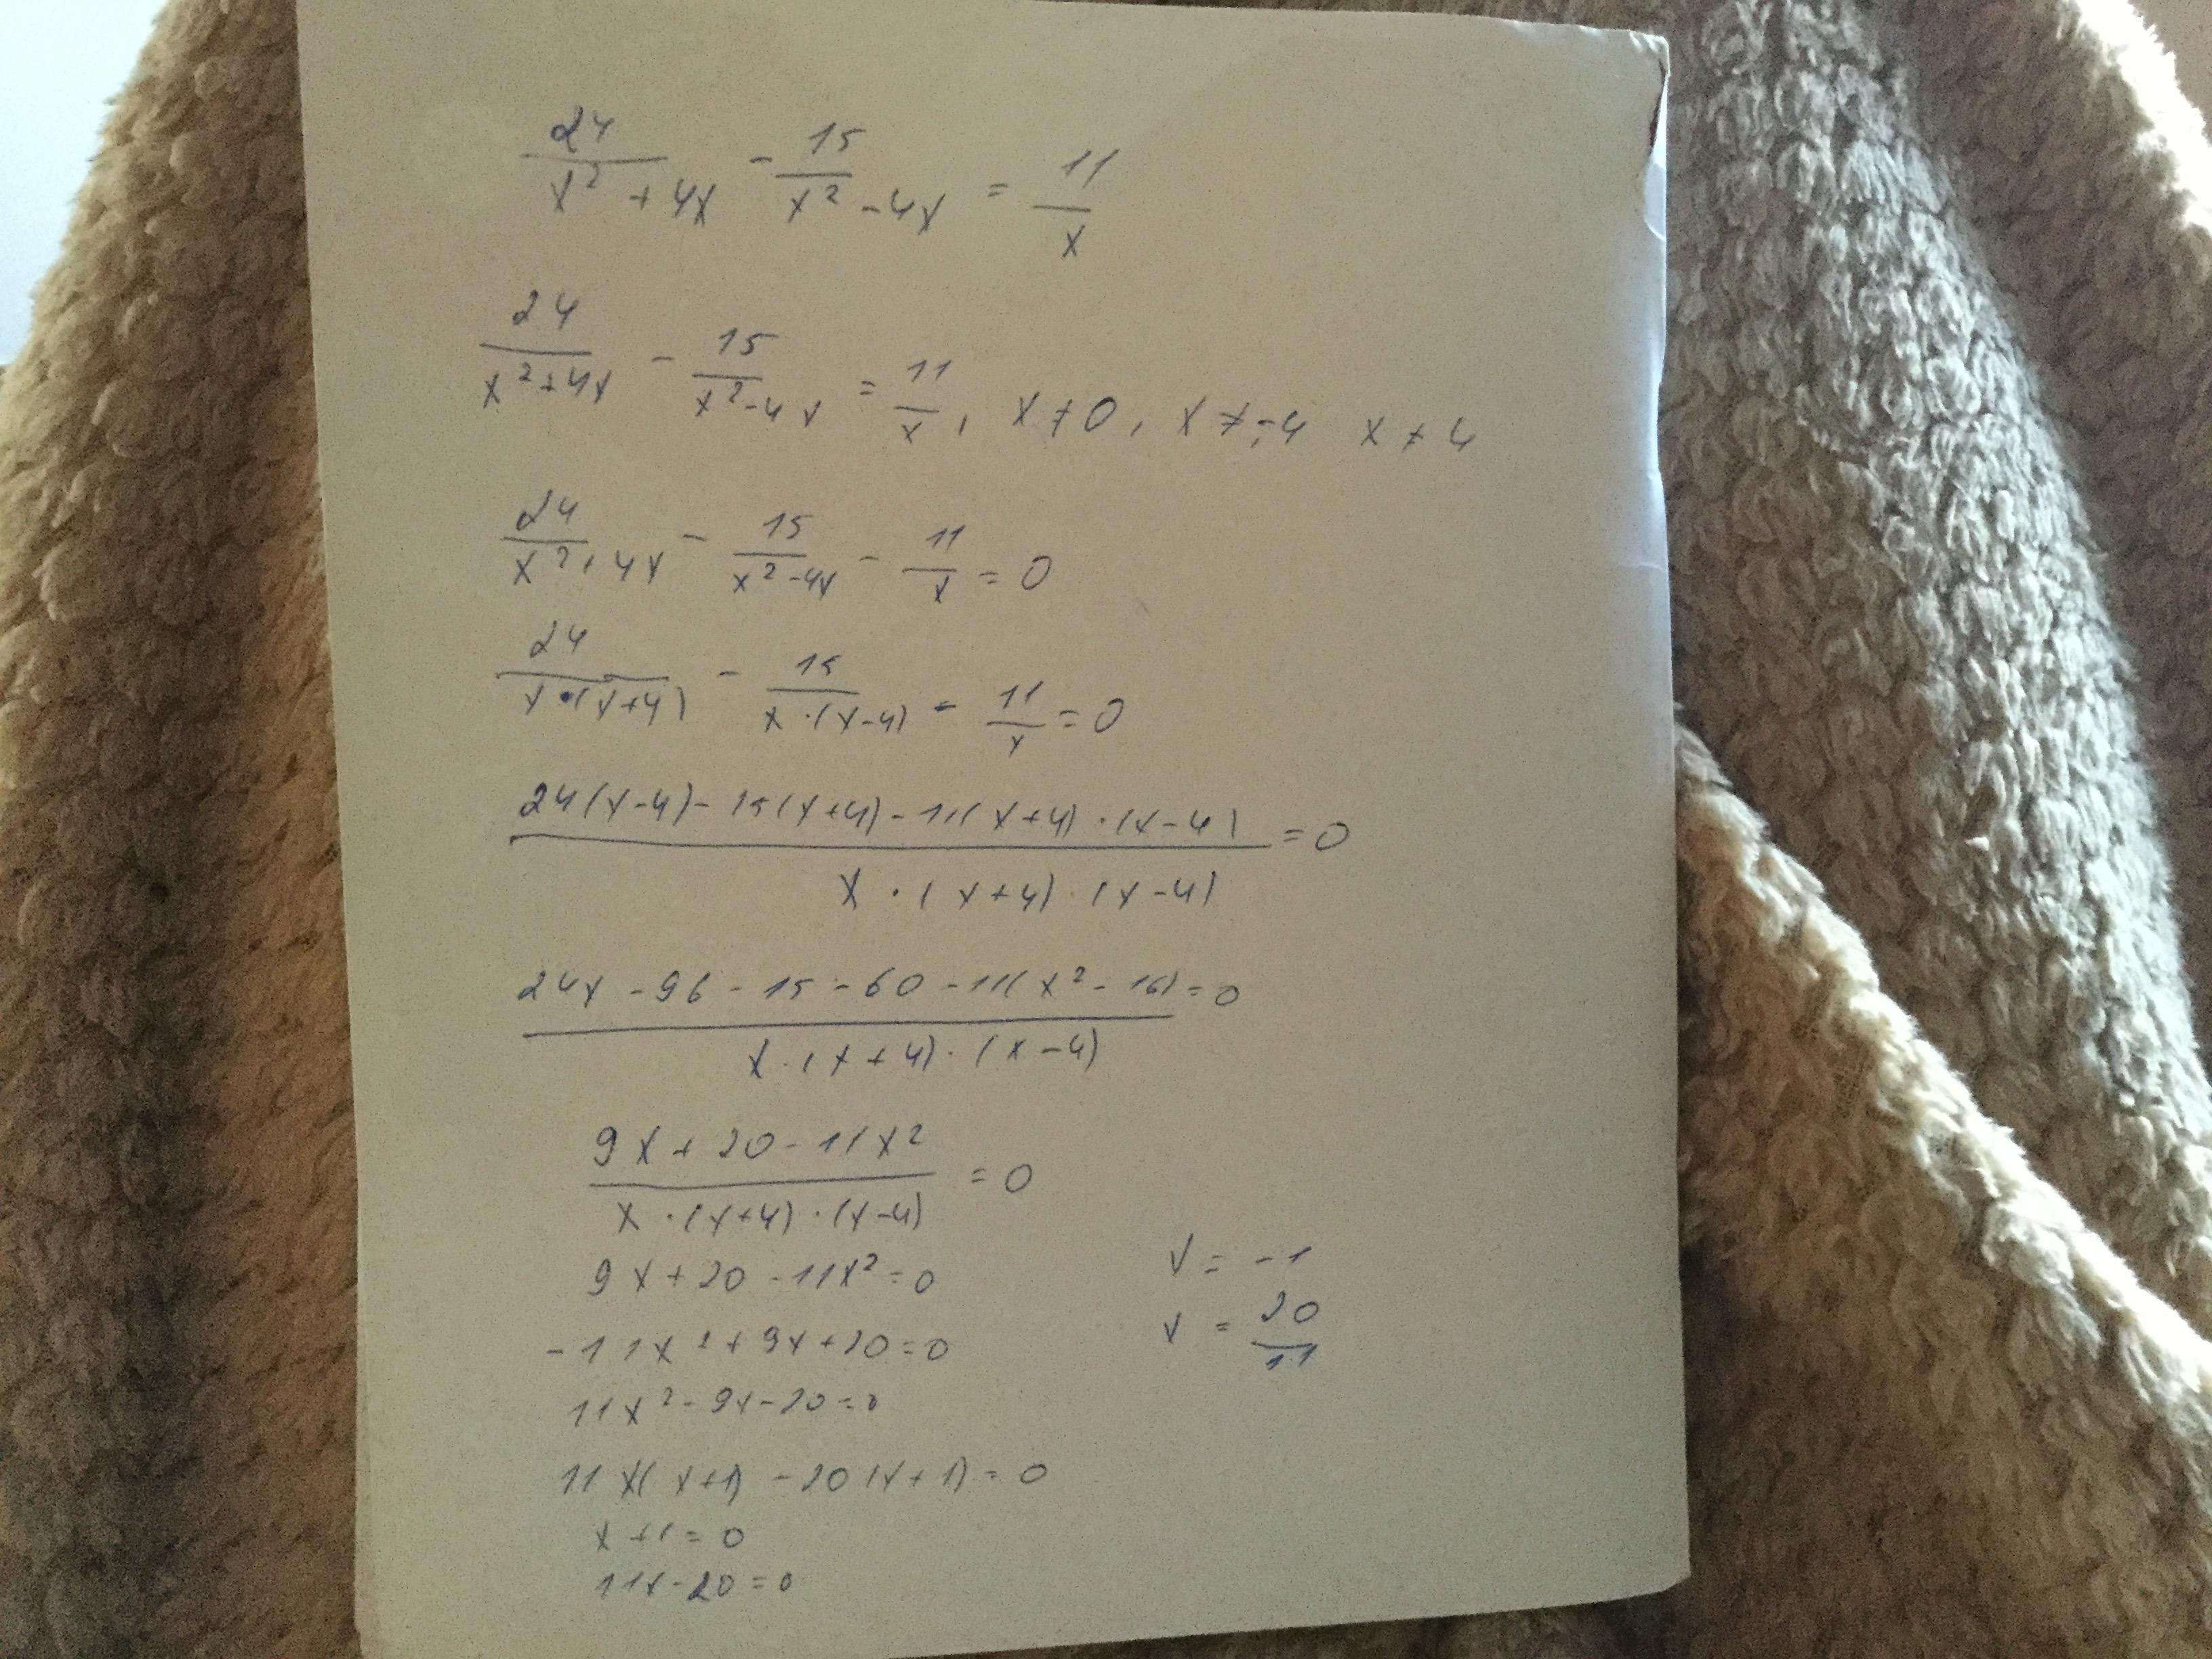 24/(x² + 4x) - 15/(x² - 4x) = 11/x
24/(x² + 4x) - 15/(x² - 4x) = 11/x, x ≠ 0, x ≠ -4 x ≠ 4
24/(x² + 4x) - 15/(x² - 4x) - 11/x = 0
24/(x · (x+4)) - 15/(x · (x-4)) - 11/x = 0
(24(x-4) - 15(x+4) - 11(x+4) · (x-4))/(x · (x+4) · (x-4)) = 0
(24x - 96 - 15 - 60 - 11(x² - 16))/(x · (x+4) · (x-4)) = 0
(9x + 20 - 11x²)/(x · (x+4) · (x-4)) = 0
9x + 20 - 11x² = 0
-11x² + 9x + 20 = 0
11x² - 9x - 20 = 0
11x(x+1) - 20(x+1) = 0
x + 1 = 0
11x - 20 = 0
x = -1
x = 20/11